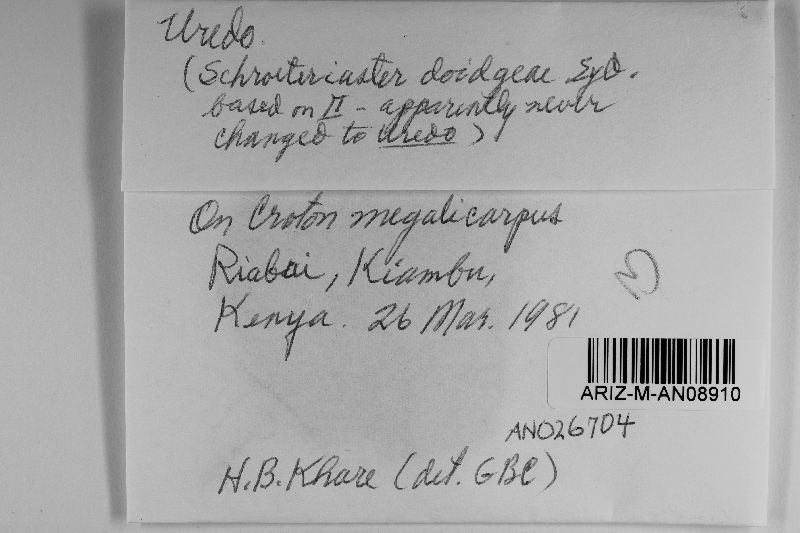 Uredo.
(Schroeteriaster doidgeae Syd.
based on II - apparently never
changed to Uredo)
On Croton megalicarpus
Riabai, Kiambu,
Kenya. 26 Mar. 1981
ARIZ-M-AN08910
AN026704
H.B. Khare (det. GBC)